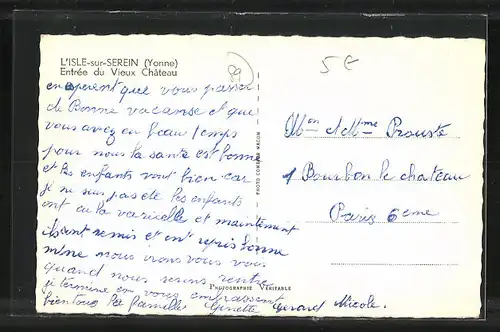 L'ISLE-sur-SEREIN (Yonne)
Entrée du Vieux Château
89
5 €
en esperent que vous passer
de Bonne vacanse et que
vous avez eu beau temps
pour nous la santé est bonne
et les enfants vont bien car
je ne suis pas été les enfants
ont eu la varicelle et maintenant
ils sont remis et on repris bonne
mine nous irons vous voir
quand nous serons rentre
je termine en vous embrassent
bientous la famille Ginette Gerard Nicole.
PHOTO COMBIER MACON
Mon et Mme Prouste
1 Bourbon le chateau
Paris 6eme
PHOTOGRAPHIE VÉRITABLE